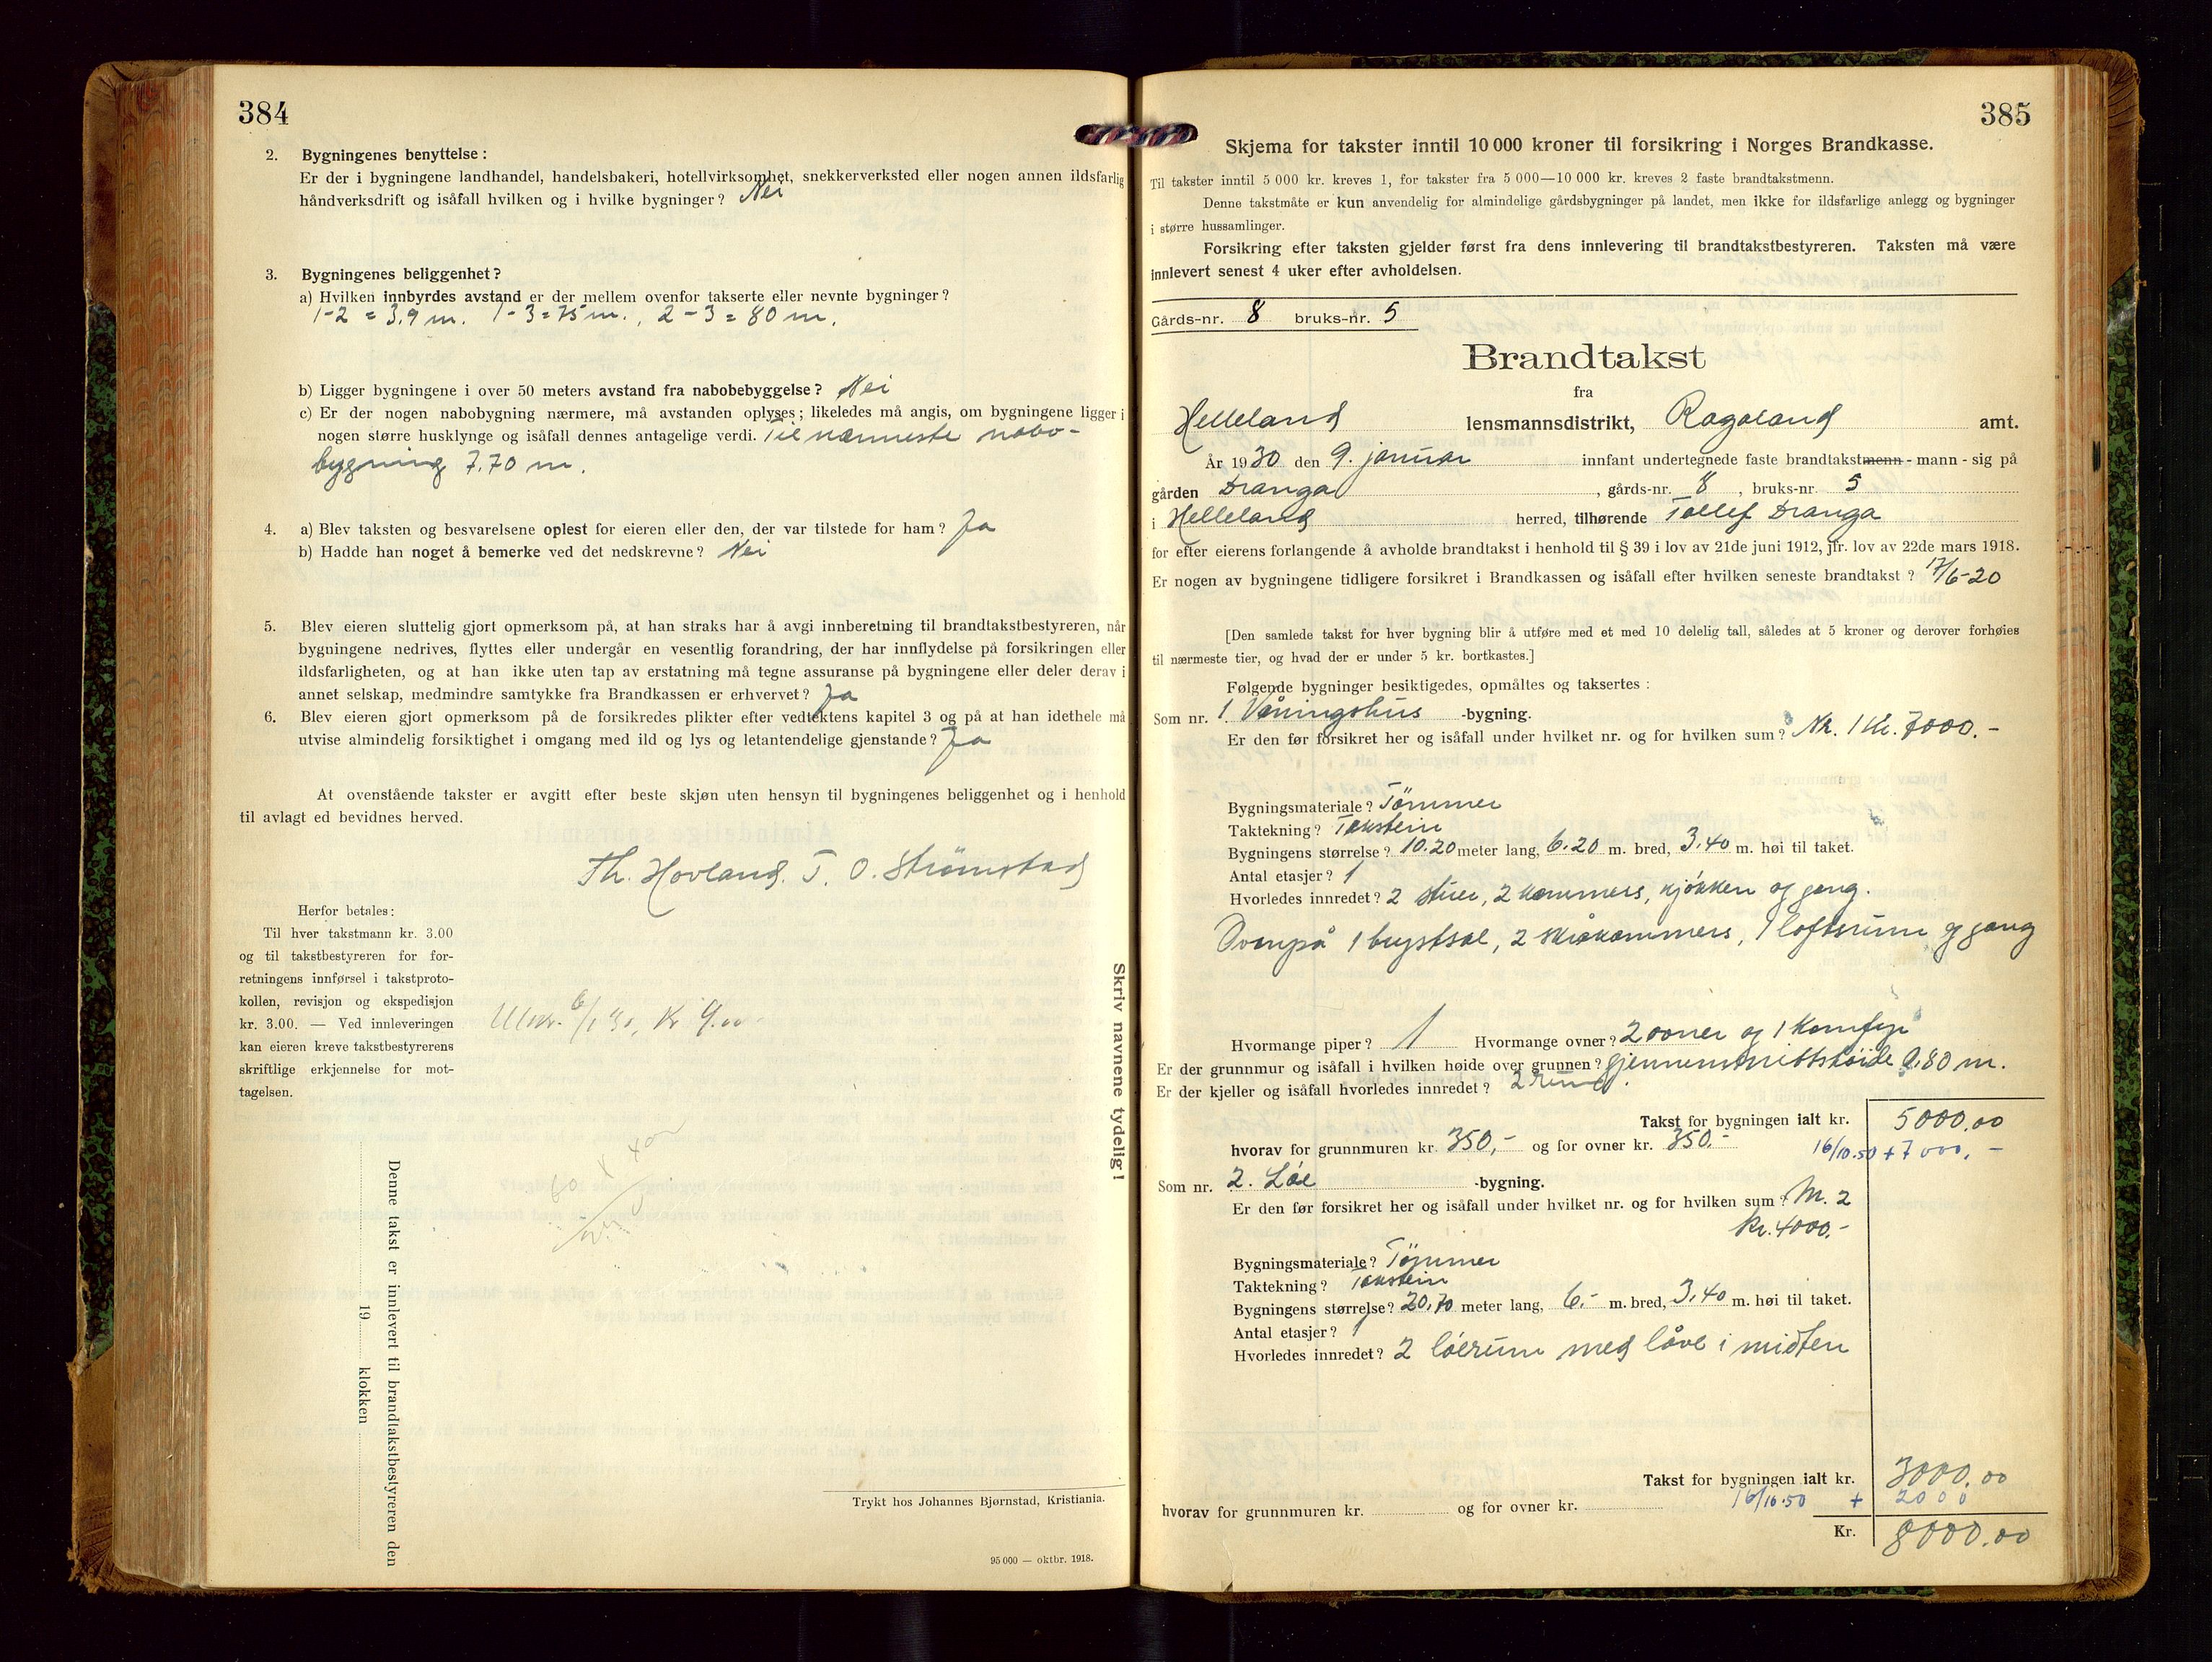 384
2. Bygningenes benyttelse:
Er der i bygningene landhandel, handelsbakeri, hotellvirksomhet, snekkerverksted eller nogen annen ildsfarlig
håndverksdrift og isåfall hvilken og i hvilke bygninger? Nei
3. Bygningenes beliggenhet?
a) Hvilken innbyrdes avstand er der mellem ovenfor takserte eller nevnte bygninger?
1-2 = 3,9 m. 1-3=75 m., 2-3=80 m.
b) Ligger bygningene i over 50 meters avstand fra nabobebyggelse? Nei
c) Er der nogen nabobygning nærmere, må avstanden oplyses; likeledes må angis, om bygningene ligger i
nogen større husklynge og isåfall dennes antagelige verdi. Til nærmeste nabo-
bygning 7.70 m.
4. a) Blev taksten og besvarelsene oplest for eieren eller den, der var tilstede for ham? Ja
b) Hadde han noget å bemerke ved det nedskrevne? Nei
5. Blev eieren sluttelig gjort opmerksom på, at han straks har å avgi innberetning til brandtakstbestyreren, når
bygningene nedrives, flyttes eller undergår en vesentlig forandring, der har innflydelse på forsikringen eller
ildsfarligheten, og at han ikke uten tap av erstatning må tegne assuranse på bygningene eller deler derav i
annet selskap, medmindre samtykke fra Brandkassen er erhvervet? Ja
6. Blev eieren gjort opmerksom på de forsikredes plikter efter vedtektens kapitel 3 og på at han idethele må
utvise almindelig forsiktighet i omgang med ild og lys og letantendelige gjenstande? Ja
At ovenstående takster er avgitt efter beste skjøn uten hensyn til bygningenes beliggenhet og i henhold
til avlagt ed bevidnes herved.
Th. Hovland. T. O. Strømstad
Herfor betales:
Til hver takstmann kr. 3.00
og til takstbestyreren for for-
retningens innførsel i takstproto-
kollen, revisjon og ekspedisjon
kr. 3.00. — Ved innleveringen
kan eieren kreve takstbestyrerens
skriftlige erkjennelse for mot-
tagelsen.
6/1 30, Kr 9.00
Skriv navnene tydelig!
Denne takst er innlevert til brandtakstbestyreren den
19 klokken
Trykt hos Johannes Bjørnstad, Kristiania.
95 000 — oktbr. 1918.
385
Skjema for takster inntil 10 000 kroner til forsikring i Norges Brandkasse.
Til takster inntil 5 000 kr. kreves 1, for takster fra 5 000—10 000 kr. kreves 2 faste brandtakstmenn.
Denne takstmåte er kun anvendelig for almindelige gårdsbygninger på landet, men ikke for ildsfarlige anlegg og bygninger
i større hussamlinger.
Forsikring efter taksten gjelder først fra dens innlevering til brandtakstbestyreren. Taksten må være
innlevert senest 4 uker efter avholdelsen.
Gårds-nr. 8 bruks-nr. 5
Brandtakst
fra
Helleland lensmannsdistrikt, Rogaland amt.
År 1930 den 9. januar innfant undertegnede faste brandtakstmenn - mann - sig på
gården Dranga, gårds-nr. 8, bruks-nr. 5
i Helleland herred, tilhørende Tollef Dranga
for efter eierens forlangende å avholde brandtakst i henhold til § 39 i lov av 21de juni 1912, jfr. lov av 22de mars 1918.
Er nogen av bygningene tidligere forsikret i Brandkassen og isåfall efter hvilken seneste brandtakst? 17/6-20
[Den samlede takst for hver bygning blir å utføre med et med 10 delelig tall, således at 5 kroner og derover forhøies
til nærmeste tier, og hvad der er under 5 kr. bortkastes.]
Følgende bygninger besiktigedes, opmåltes og taksertes:
Som nr. 1. Våningshus -bygning.
Er den før forsikret her og isåfall under hvilket nr. og for hvilken sum? Nr. 1 Kr. 7000.-
Bygningsmateriale? Tömmer
Taktekning? Takstein
Bygningens størrelse? 10.20 meter lang, 6.20 m. bred, 3.40 m. høi til taket.
Antal etasjer? 1
Hvorledes innredet? 2 stuer, 2 kammers, kjøkken og gang.
Ovenpå 1 brystsal, 2 skråkammers, 1 loftsrum og gang
Hvormange piper? 1 Hvormange ovner? 2 ovner og 1 Komfyr
Er der grunnmur og isåfall i hvilken høide over grunnen? Gjennemsnittshöide 0.80 m.
Er der kjeller og isåfall hvorledes innredet? 2 rum.
Takst for bygningen ialt kr. 5000.00
hvorav for grunnmuren kr. 350,- og for ovner kr. 350.-
16/10.50 + 7000.-
Som nr. 2. Löe -bygning.
Er den før forsikret her og isåfall under hvilket nr. og for hvilken sum? Nr. 2
Kr. 4000.-
Bygningsmateriale? Tömmer
Taktekning? Takstein
Bygningens størrelse? 20.70 meter lang, 6.- m. bred, 3.40 m. høi til taket.
Antal etasjer? 1
Hvorledes innredet? 2 löerum med låve i midten
Takst for bygningen ialt kr. 3000.00
16/10.50 + 2000
hvorav for grunnmuren kr. og for ovner kr.
Kr. 8000.00